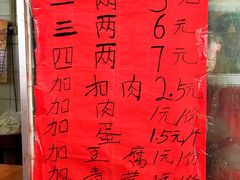 二两 5元
三两 6元
四两 7元
加扣肉 2.5元/份
加肉 1元/份
加蛋 1.5元/个
加豆腐 1元/份
加青菜